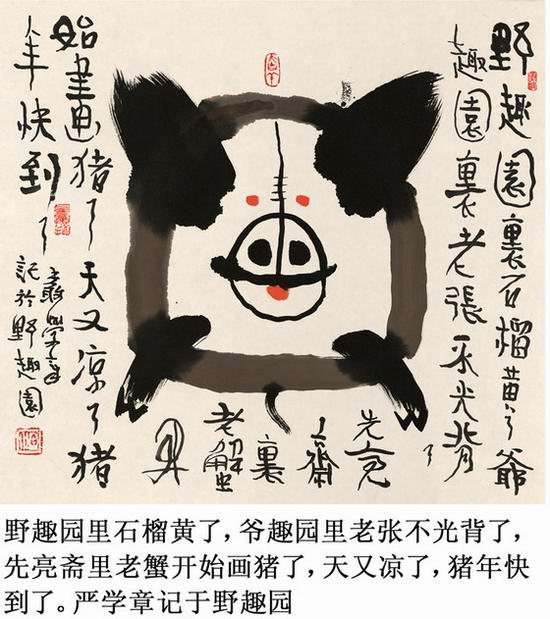 野趣園裏石榴黄了爺
趣園裏老張不光背了
先亮
齋
裏
老蟹
開
始畫猪了天又凉了猪
年快到了
嚴學章
記於野趣園
野趣园里石榴黄了,爷趣园里老张不光背了,
先亮斋里老蟹开始画猪了,天又凉了,猪年快
到了。严学章记于野趣园